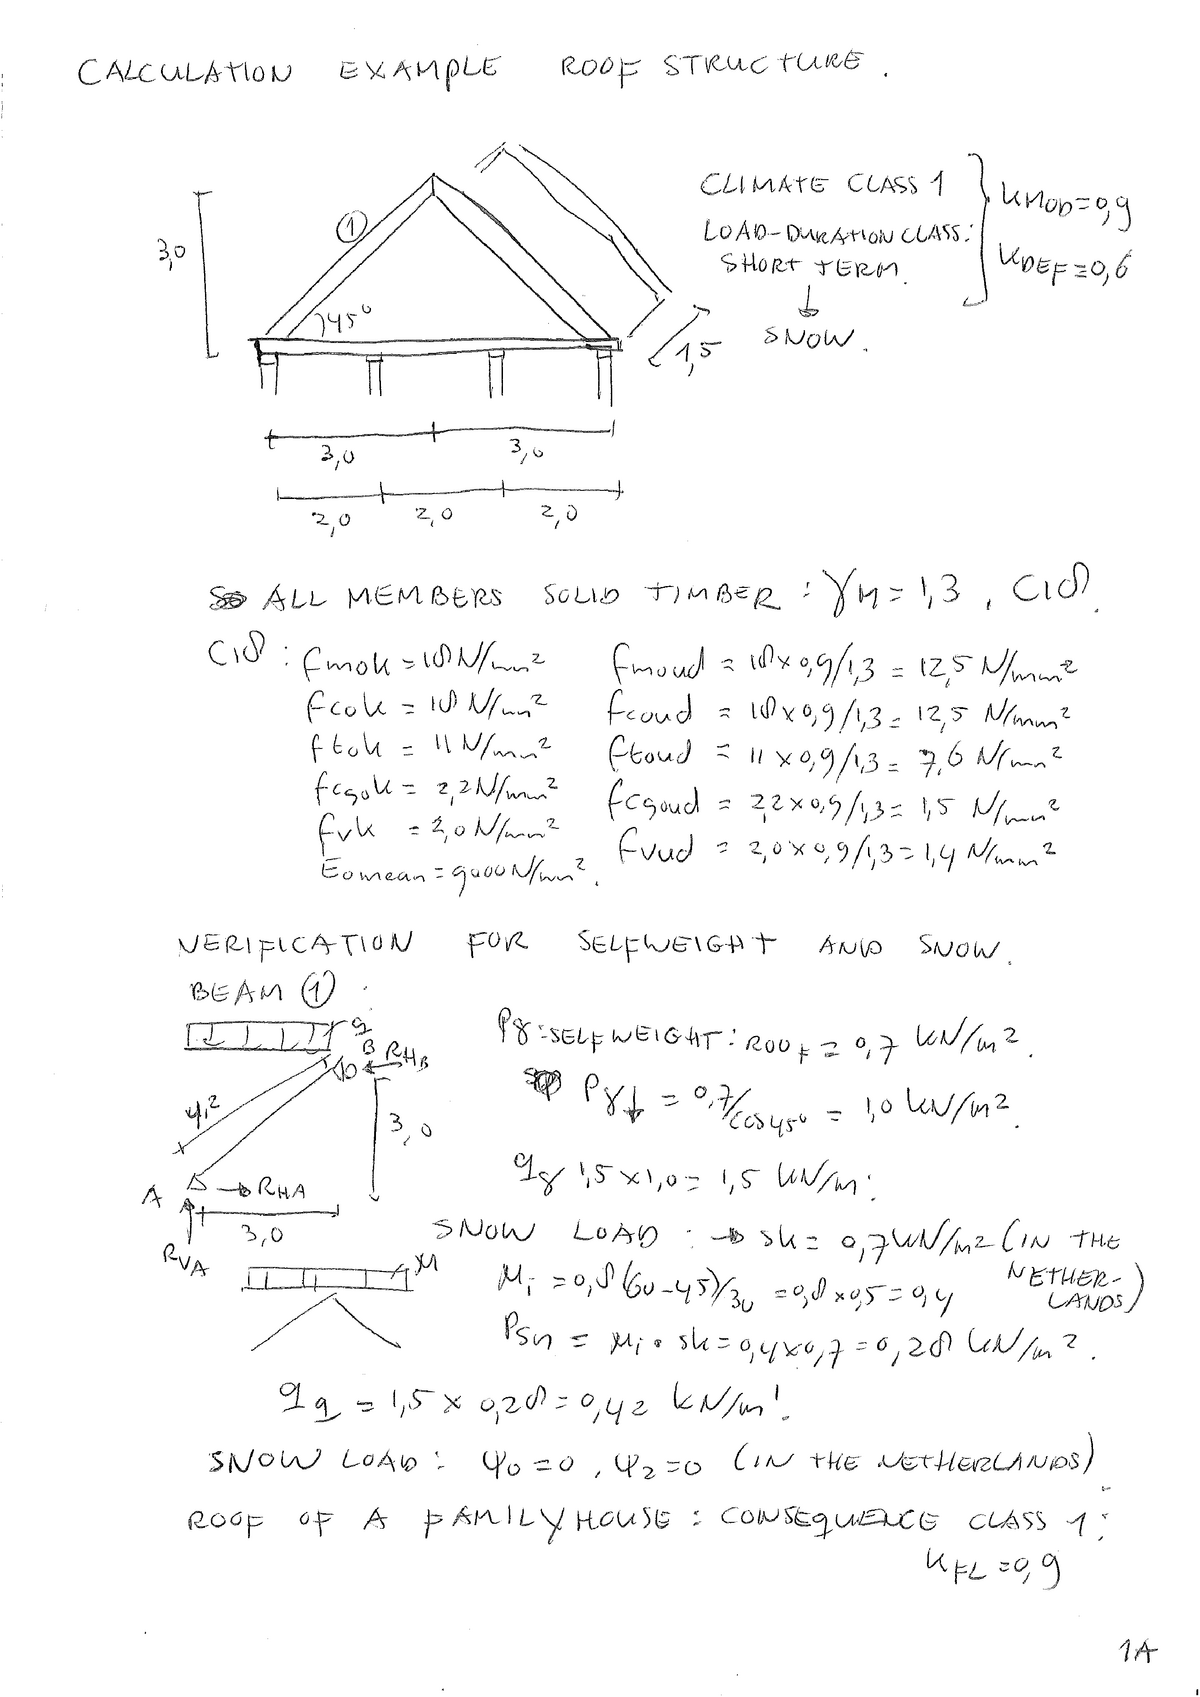 CALCULATION EXAMPLE ROOF STRUCTURE.
3,0
1
45°
1,5
CLIMATE CLASS 1
LOAD-DURATION CLASS:
SHORT TERM.
↓
SNOW.
kMOD=0,9
kDEF=0,6
3,0 3,0
2,0 2,0 2,0
ALL MEMBERS SOLID TIMBER: γM=1,3, C18.
C18: fmok=18N/mm² fmoud = 18x0,9/1,3 = 12,5 N/mm²
fcok = 18 N/mm² fcoud = 18x0,9/1,3 = 12,5 N/mm²
ftok = 11 N/mm² ftoud = 11x0,9/1,3 = 7,6 N/mm²
fc90k = 2,2N/mm² fc90ud = 2,2x0,9/1,3 = 1,5 N/mm²
fvk = 2,0N/mm² fvud = 2,0x0,9/1,3=1,4 N/mm²
Eomean=9000N/mm².
VERIFICATION FOR SELFWEIGHT AND SNOW.
BEAM ①.
g
B RHB
4,2
3,0
A RHA
3,0
RVA
μ
Pg:SELFWEIGHT: ROOF = 0,7 kN/m².
Pg↓ = 0,7/cos45° = 1,0 kN/m².
qg 1,5x1,0= 1,5 kN/m'.
SNOW LOAD: → sk= 0,7kN/m² (IN THE NETHER-
LANDS)
μi = 0,8(60-45)/30 = 0,8x0,5=0,4
Psn = μi • sk=0,4x0,7=0,28 kN/m².
qq = 1,5 x 0,28=0,42 kN/m'.
SNOW LOAD: ψ0=0, ψ2=0 (IN THE NETHERLANDS).
ROOF OF A FAMILYHOUSE: CONSEQUENCE CLASS 1:
kFL=0,9
1A